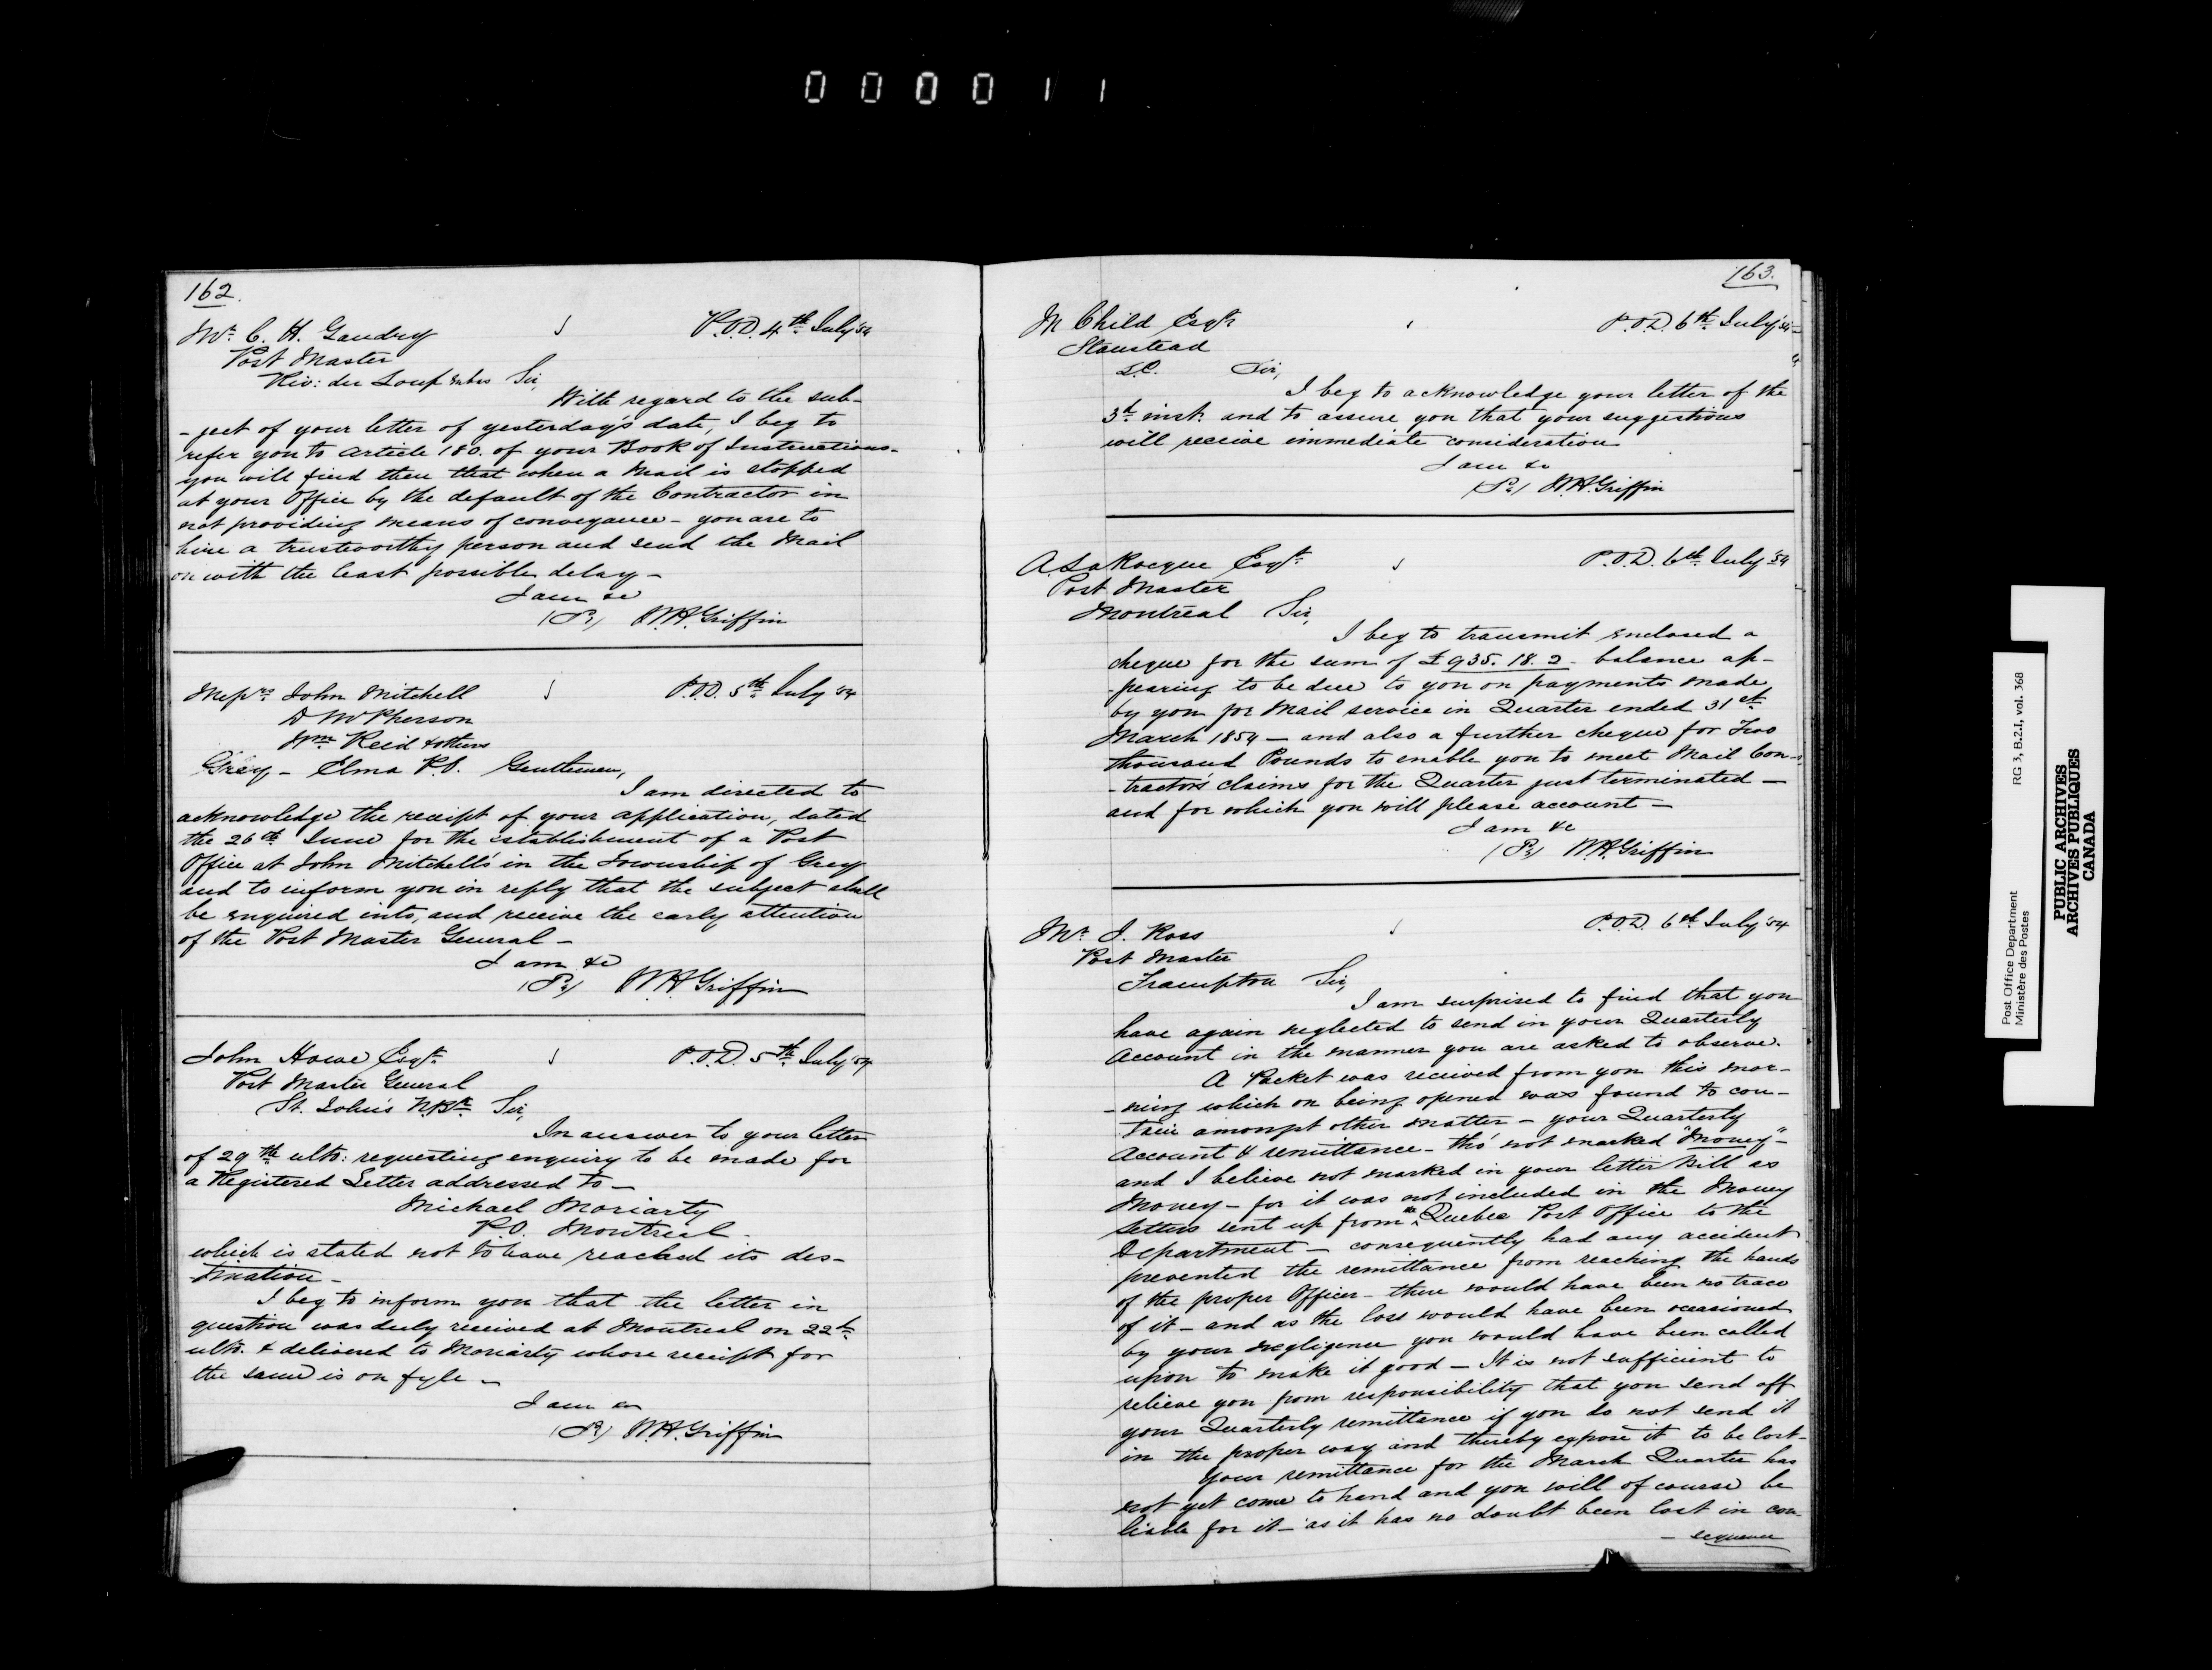 000011
162.
Mr. C. H. Gaudry P.O.D. 4th July '54
Post Master
Riv: du Loup Sir,
With regard to the sub-
-ject of your letter of yesterday's date, I beg to
refer you to Article 180. of your Book of Instructions.
you will find then that when a Mail is stopped
at your Office by the default of the Contractor in
not providing means of conveyance - you are to
hire a trustworthy person and send the Mail
on with the least possible delay -
I am &c
W.H. Griffin
Messrs John Mitchell P.O.D. 5th July '54
D McPherson
Wm Reid & others
Grey - Elma P.O. Gentlemen,
I am directed to
acknowledge the receipt of your application, dated
the 26th June for the establishment of a Post
Office at John Mitchell's in the Township of Grey
and to inform you in reply that the subject shall
be enquired into, and receive the early attention
of the Post Master General -
I am &c
W.H. Griffin
John Howe Esqr. P.O.D. 5th July '54
Post Master General
St. John's N.Bk. Sir,
In answer to your letter
of 29th ulto: requesting enquiry to be made for
a Registered Letter addressed to -
Michael Moriarty
P.O. Montreal.
which is stated not to have reached its des-
-tination -
I beg to inform you that the letter in
question was duly received at Montreal on 22d
ulto. & delivered to Moriarty whose receipt for
the same is on fyle -
I am &c
W.H. Griffin
163.
M Child Esqr P.O.D. 6th July '54
Stanstead
L.C. Sir,
I beg to acknowledge your letter of the
3d inst. and to assure you that your suggestions
will receive immediate consideration
I am &c
W.H. Griffin
A. LaRocque Esqr. P.O.D. 6th July '54
Post Master
Montreal Sir,
I beg to transmit enclosed a
cheque for the sum of £935. 18. 2. balance ap-
-pearing to be due to you on payments made
by you for Mail service in Quarter ended 31st
March 1854 - and also a further cheque for Two
thousand Pounds to enable you to meet Mail Con-
-tractor's claims for the Quarter just terminated -
and for which you will please account -
I am &c
W.H. Griffin
Mr. J. Ross P.O.D. 6th July '54
Post Master
Frampton Sir,
I am surprised to find that you
have again neglected to send in your Quarterly
Account in the manner you are asked to observe.
A Packet was received from you this mor-
-ning which on being opened was found to con-
-tain amongst other matter - your Quarterly
Account & remittance - tho' not marked "Money" -
and I believe not marked in your letter bill as
Money - for it was not included in the Money
Letters sent up from the Quebec Post Office to the
Department - consequently had any accident
prevented the remittance from reaching the hands
of the proper Officer - there would have been no trace
of it - and as the loss would have been occasioned
by your negligence you would have been called
upon to make it good - It is not sufficient to
relieve you from responsibility that you send off
your Quarterly remittance if you do not send it
in the proper way and thereby expose it to be lost -
Your remittance for the March Quarter has
not yet come to hand and you will of course be
liable for it - as it has no doubt been lost in con-
-sequence
Post Office Department
Ministère des Postes
RG 3, B.2.I, vol. 368
PUBLIC ARCHIVES
ARCHIVES PUBLIQUES
CANADA